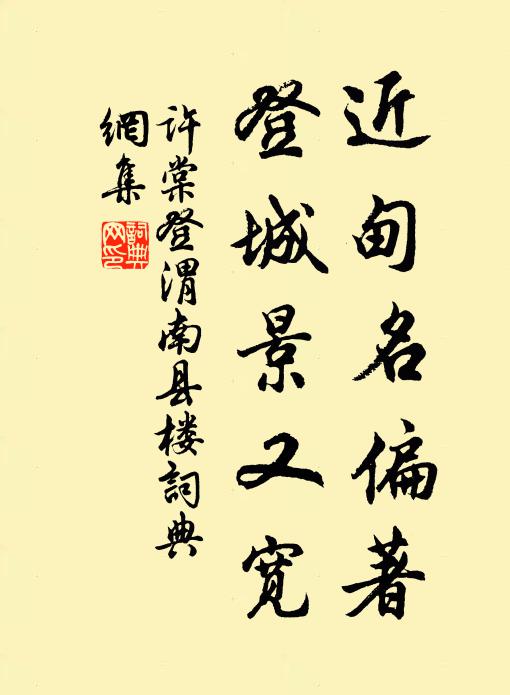 近甸名偏著
登城景又宽
许棠登渭南县楼詞典
網集
詞典
网印